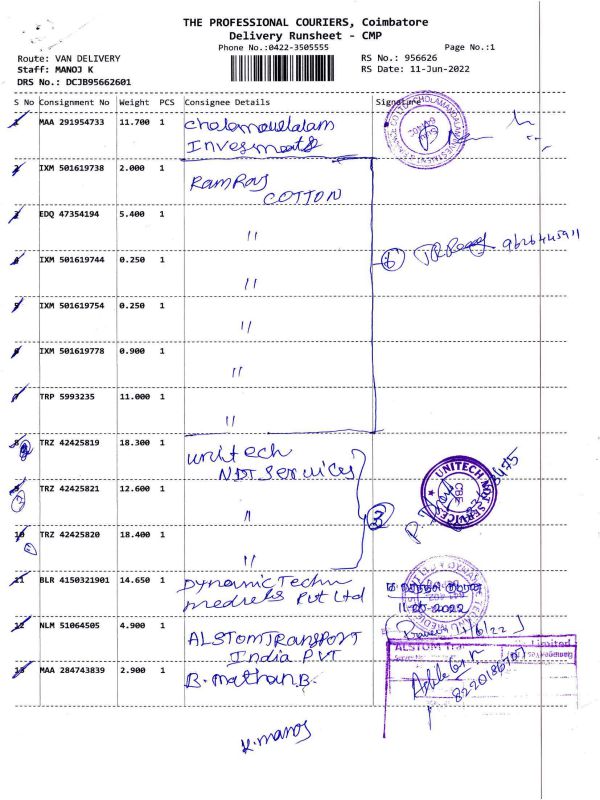 THE PROFESSIONAL COURIERS, Coimbatore
Delivery Runsheet - CMP
Phone No.:0422-3505555 Page No.:1
Route: VAN DELIVERY RS No.: 956626
Staff: MANOJ K RS Date: 11-Jun-2022
DRS No.: DCJB95662601
S No Consignment No Weight PCS Consignee Details Signature
1 MAA 291954733 11.700 1 Cholamandalam
Invesments
2 IXM 501619738 2.000 1 RamRaj
COTTON
3 EDQ 47354194 5.400 1 "
6 9626445911
4 IXM 501619744 0.250 1 "
5 IXM 501619754 0.250 1 "
6 IXM 501619778 0.900 1 "
7 TRP 5993235 11.000 1 "
8 TRZ 42425819 18.300 1 unitech
NDT Services
UNITECH NDT SERVICES
CBE
9 TRZ 42425821 12.600 1 "
3
10 TRZ 42425820 18.400 1 "
11 BLR 4150321901 14.650 1 Dynamic Techn
medreks Pvt Ltd
11-06-2022
12 NLM 51064505 4.900 1 ALSTOM TRANSPORT
India PVT
ALSTOM Limited
13 MAA 284743839 2.900 1 B. mathan B.
K. manoj